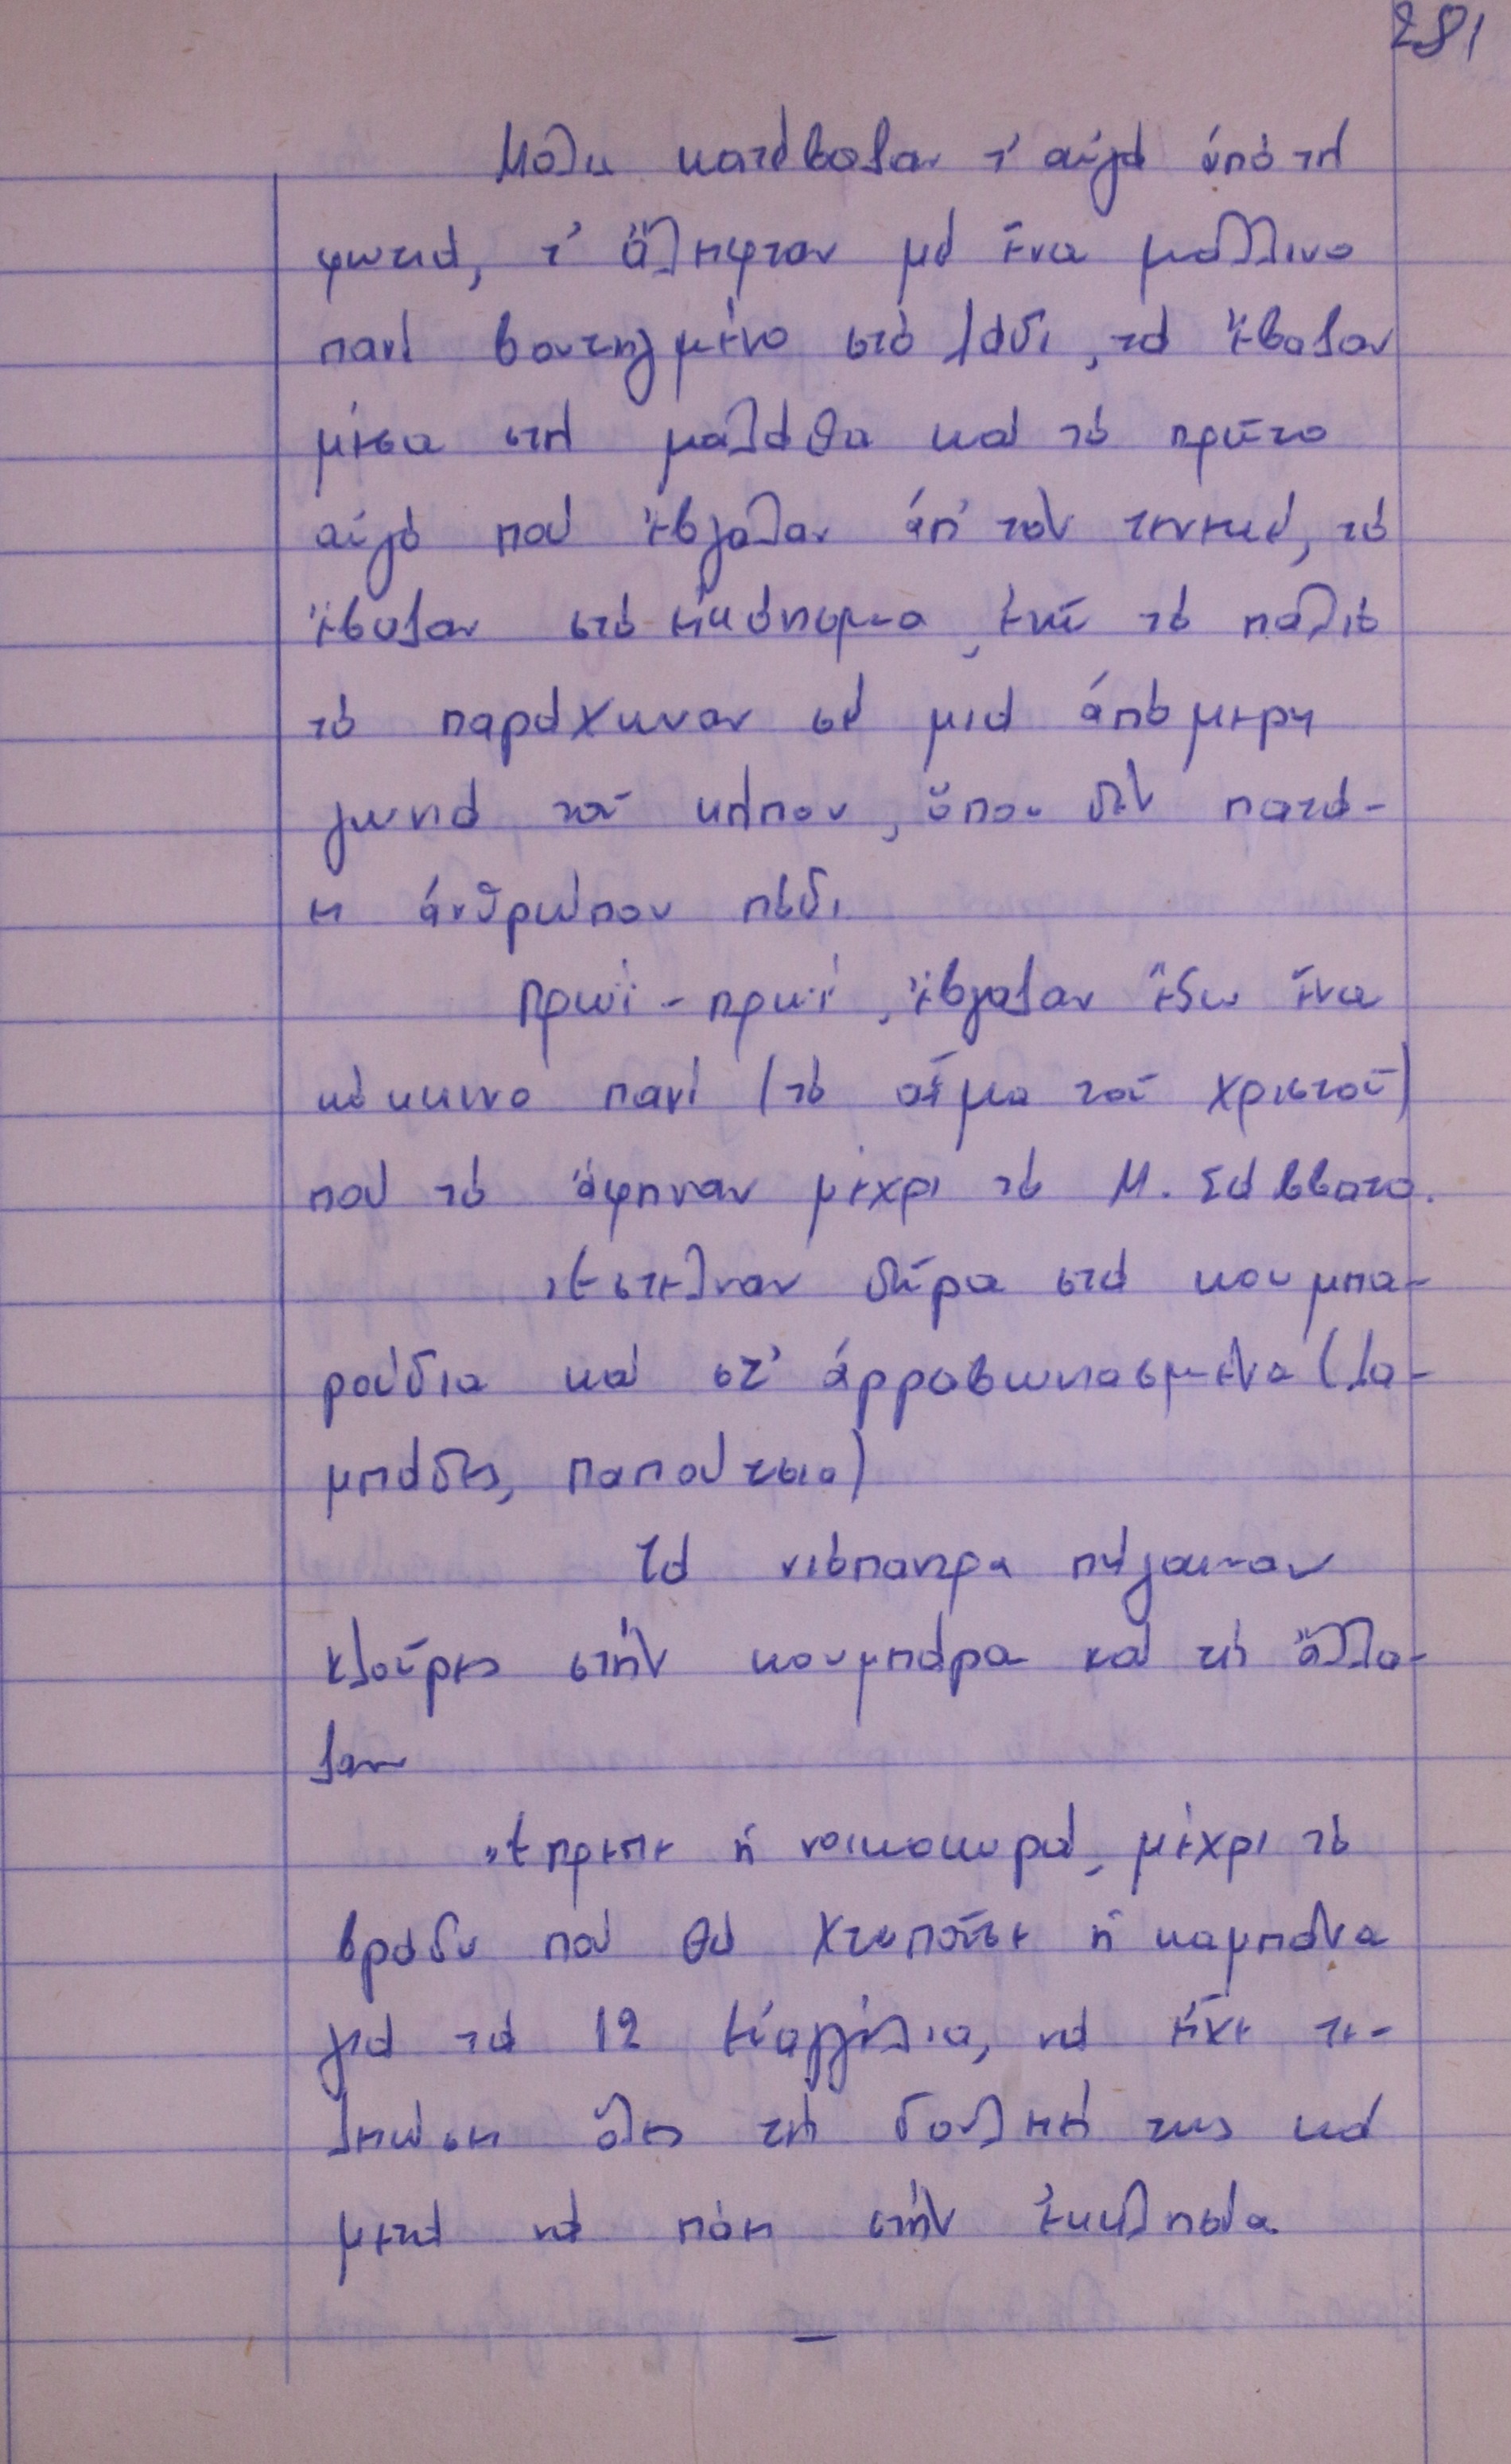 281
Μόλις κατέβαζαν τ' αὐγά ἀπό τή
φωτιά, τ' ἄλειφταν μέ ἕνα μάλλινο
πανί βουτηγμένο στό λάδι, τά ἔβαζαν
μέσα στή μαλάθα καί τό πρῶτο
αὐγό πού ἔβγαζαν ἀπ' τόν τεντζερέ, τό
ἔβαζαν στό εἰκόνισμα, ἐνῶ τό παλιό
τό παράχωναν σέ μιά ἀπόμερη
γωνιά τοῦ κήπου, ὅπου δέν πατά-
ει ἀνθρώπου πόδι.
Πρωΐ-πρωΐ, ἔβγαζαν ἔξω ἕνα
κόκκινο πανί (τό αἷμα τοῦ Χριστοῦ)
πού τό ἄφηναν μέχρι τό Μ. Σάββατο.
Ἔστελναν δῶρα στά κουμπα-
ρούδια καί στ' ἀρραβωνιασμένα (λα-
μπάδες, παπούτσια)
Τά νιόπαντρα πήγαιναν
κλοῦρες στήν κουμπάρα καί τή ἄλλα-
ζαν
Ἔπρεπε ἡ νοικοκυρά, μέχρι τό
βράδυ πού θά χτυποῦσε ἡ καμπάνα
γιά τά 12 Εὐαγγέλια, νά εἶχε τε-
λειώσει ὅλες τή δουλειή της καί
μετά νά πάει στήν ἐκκλησία.